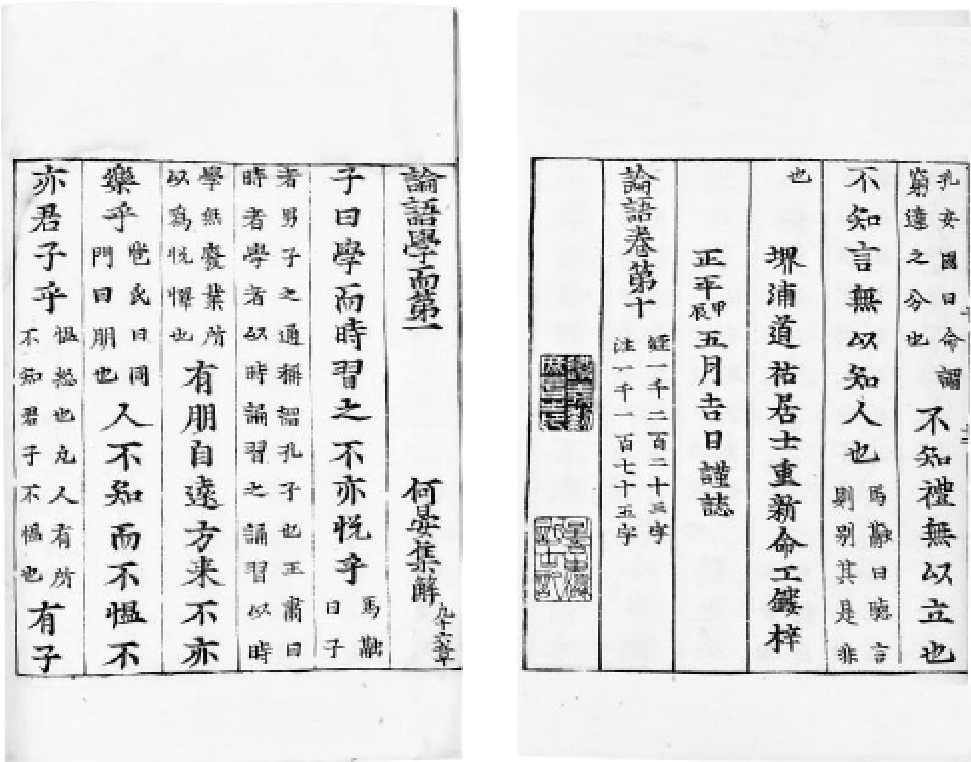 論語學而第一 何晏集解 凡十六章
子曰學而時習之不亦悦乎 馬融曰子
者男子之通稱謂孔子也王肅曰
時者學者以時誦習之誦習以時
學無廢業所以爲悦懌也 有朋自遠方来不亦
樂乎 苞氏曰同門曰朋也 人不知而不愠不
亦君子乎 愠怒也凡人有所不知君子不愠也 有子
孔安國曰命謂窮達之分也 不知禮無以立也
不知言無以知人也 馬融曰聽言則别其是非
也
堺浦道祐居士重新命工鏤梓
正平甲辰五月吉日謹誌
論語卷第十 經一千二百二十三字
注一千一百七十五字